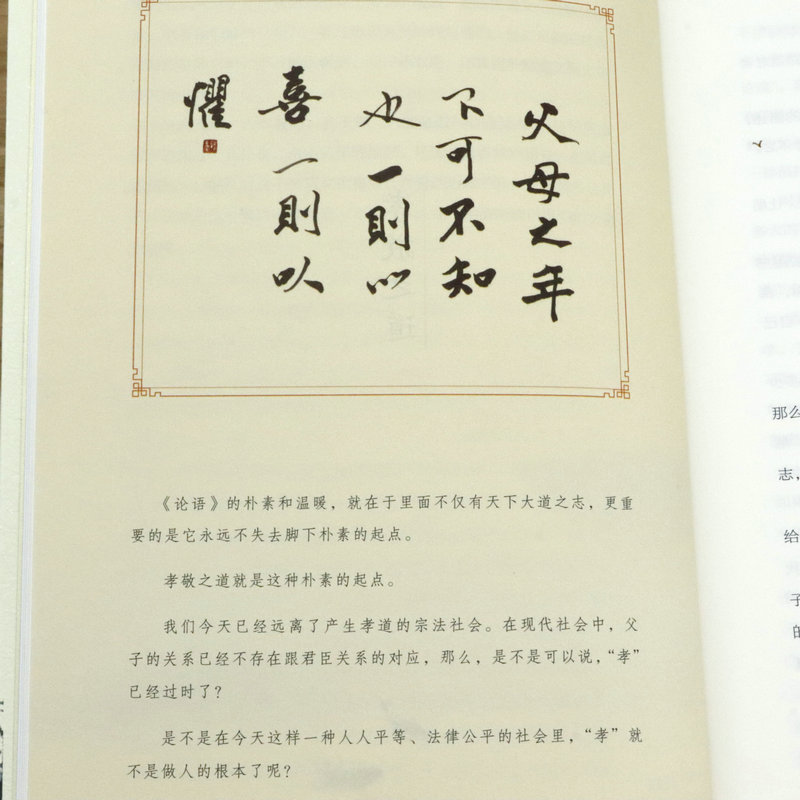 父母之年
不可不知
也一則以
喜一則以
懼
《论语》的朴素和温暖，就在于里面不仅有天下大道之志，更重
要的是它永远不失去脚下朴素的起点。
孝敬之道就是这种朴素的起点。
我们今天已经远离了产生孝道的宗法社会。在现代社会中，父
子的关系已经不存在跟君臣关系的对应，那么，是不是可以说，“孝”
已经过时了？
是不是在今天这样一种人人平等、法律公平的社会里，“孝”就
不是做人的根本了呢？
那么
志，
给
子
的